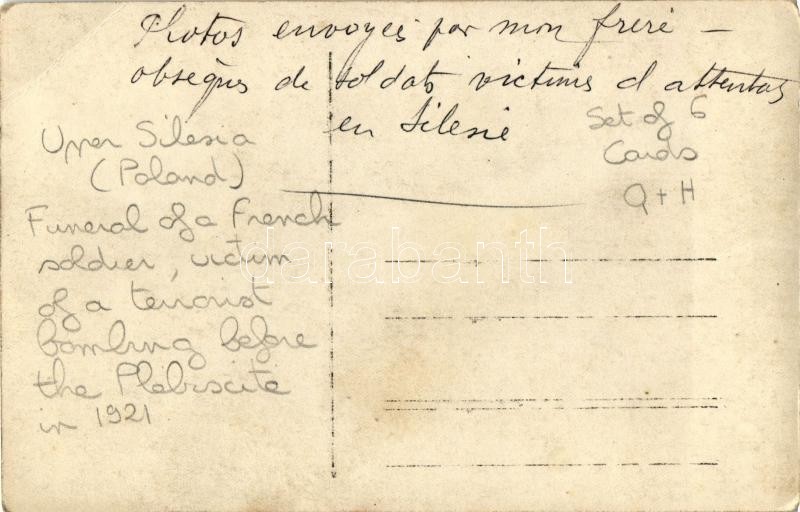 Photos envoyées par mon frère –
obsèques de soldats victimes d'attentats
en Silésie
Upper Silesia
(Poland)
Funeral of a French
soldier, victim
of a terrorist
bombing before
the Plebiscite
in 1921
Set of 6
Cards
Q + H
darabanth